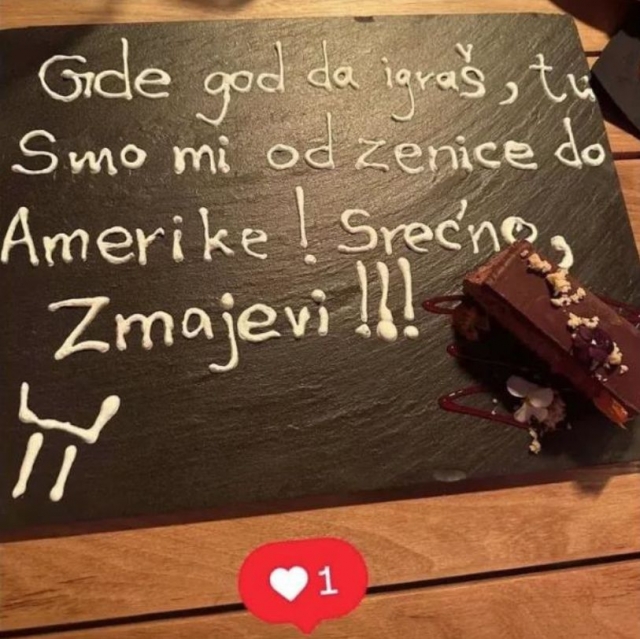 Gde god da igraš, tu
Smo mi od zenice do
Amerike! Srećno,
Zmajevi!!!
1